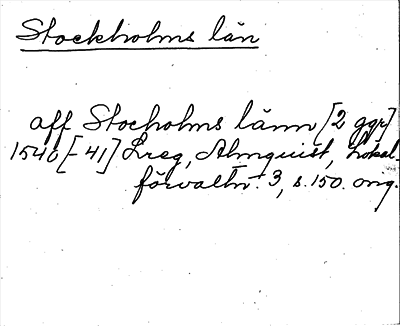 Stockholms län
aff Stocholms länn [2 ggr]
1540[-41] Lreg, Almquist, Lokal-
förvaltn. 3, s. 150. orig.